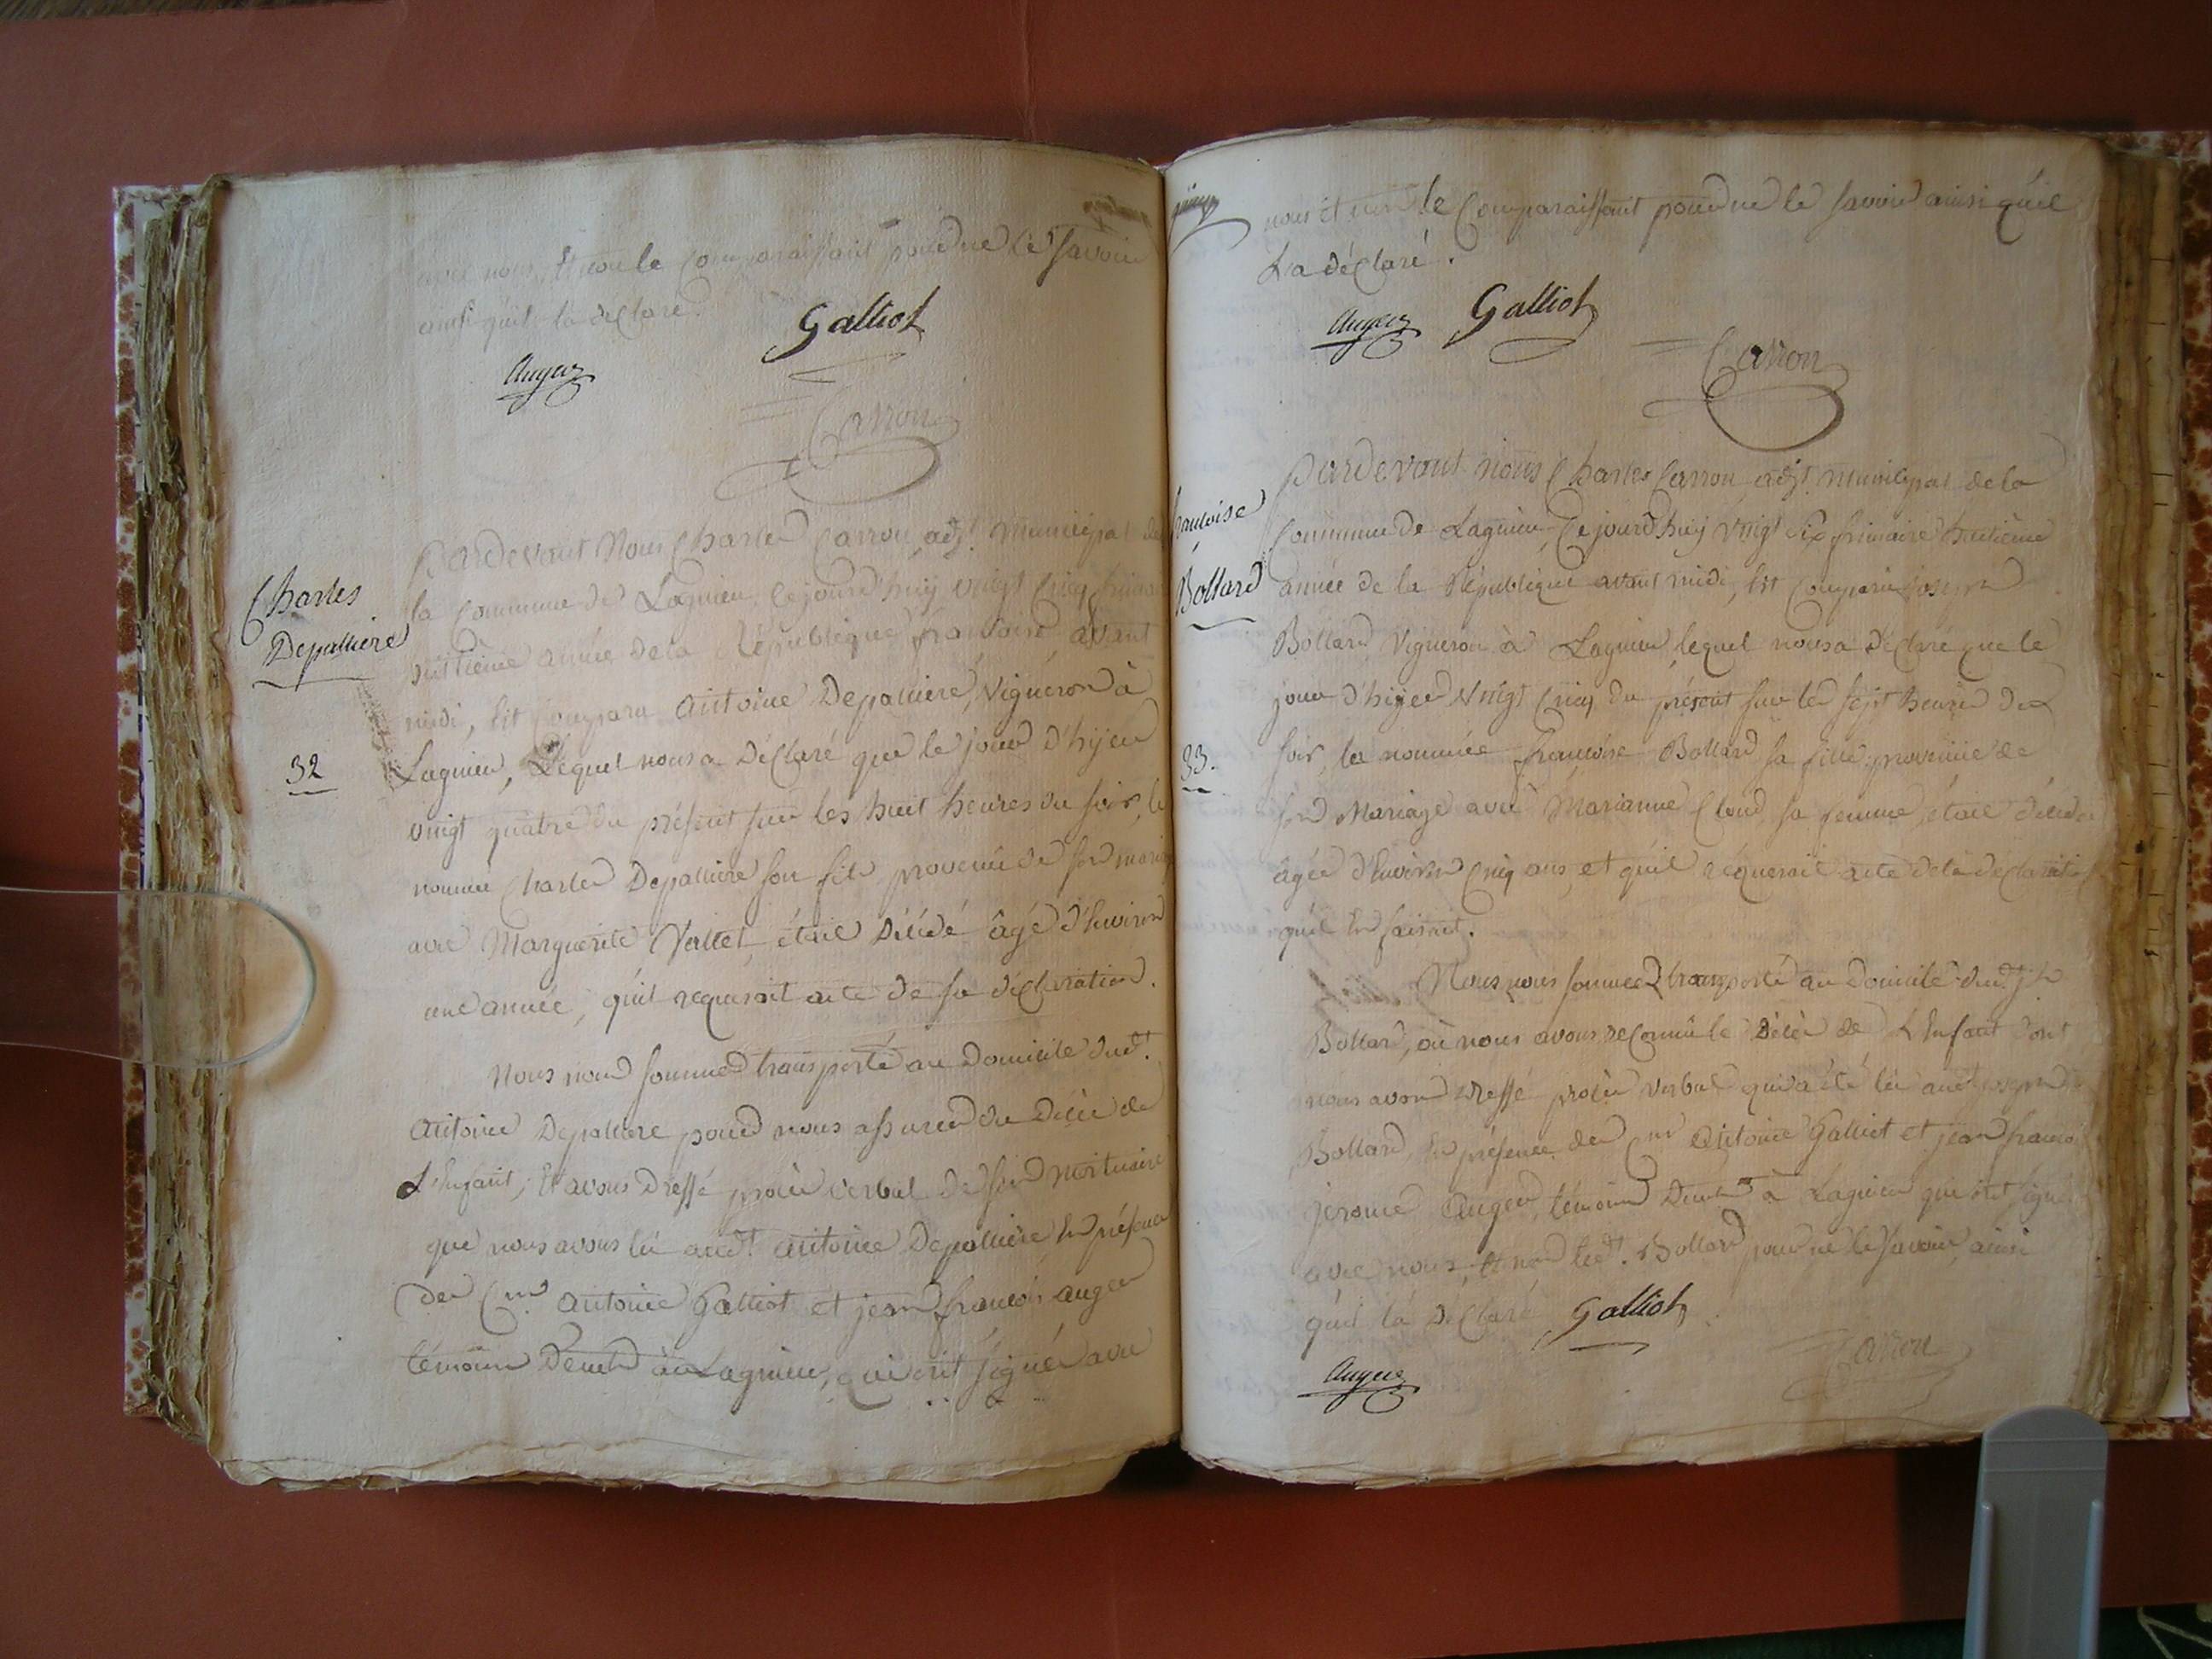 avec nous, et non le comparaissant pour ne le savoir
ainsi qu'il la déclaré.
Galliot
Auger
Carron
Charles
Depalliere
32
Pardevant Nous Charles Carron, adjt. municipal de
la commune de Lagnieu, cejourd'huy vingt cinq frimaire
huitième année de la République françoise, avant
midi, Est comparu Antoine Depalliere, Vigneron à
Lagnieu, Lequel nous a déclaré que le jour d'hyer
vingt quatre du présent sur les huit heures du soir, le
nommé Charles Depalliere son fils provenu de son mariage
avec Marguerite Vallet, étoit décédé âgé d'Environ
une année, qu'il requeroit acte de sa déclaration.
Nous nous sommes transporté au domicile dudt.
Antoine Depalliere pour nous assurer du décès de
L'Enfant, Et avons dressé procès verbal de son mortuaire
que nous avons lû audt. Antoine Depalliere En présence
des Cens. Antoine Galliot et jean françois auger
témoins demts à Lagnieu, qui ont signés avec
nous et non le Comparaissant pour ne le savoir ainsi qu'il
L'a déclaré.
Auger
Galliot
Carron
françoise
Bollard
33.
Pardevant nous Charles Carron adjt. municipal de la
Commune de Lagnieu, Cejourd'huy vingt six frimaire huitième
année de la République avant midi, Est Comparu joseph
Bollard, Vigneron à Lagnieu, lequel nous a déclaré que le
jour d'hyer vingt Cinq du présent sur les sept heures du
soir, la nommée françoise Bollard sa fille provenüe de
son Mariage avec Marianne Cloud sa femme, étoit décédée
âgée d'Environ Cinq ans, et qu'il requeroit acte de la déclaration
qu'il En faisoit.
Nous nous sommes transporté au domicile dudt. jh
Bollard, où nous avons reconnû le décès de L'Enfant dont
nous avons dressé procès verbal qui a été lû audt joseph
Bollard, En présence des Cens Antoine Galliot et jean françois
jerome Auger, témoins demts à Lagnieu qui ont signé
avec nous, Et non ledt. Bollard pour ne le savoir, ainsi
qu'il la déclaré
Galliot
Auger
Carron